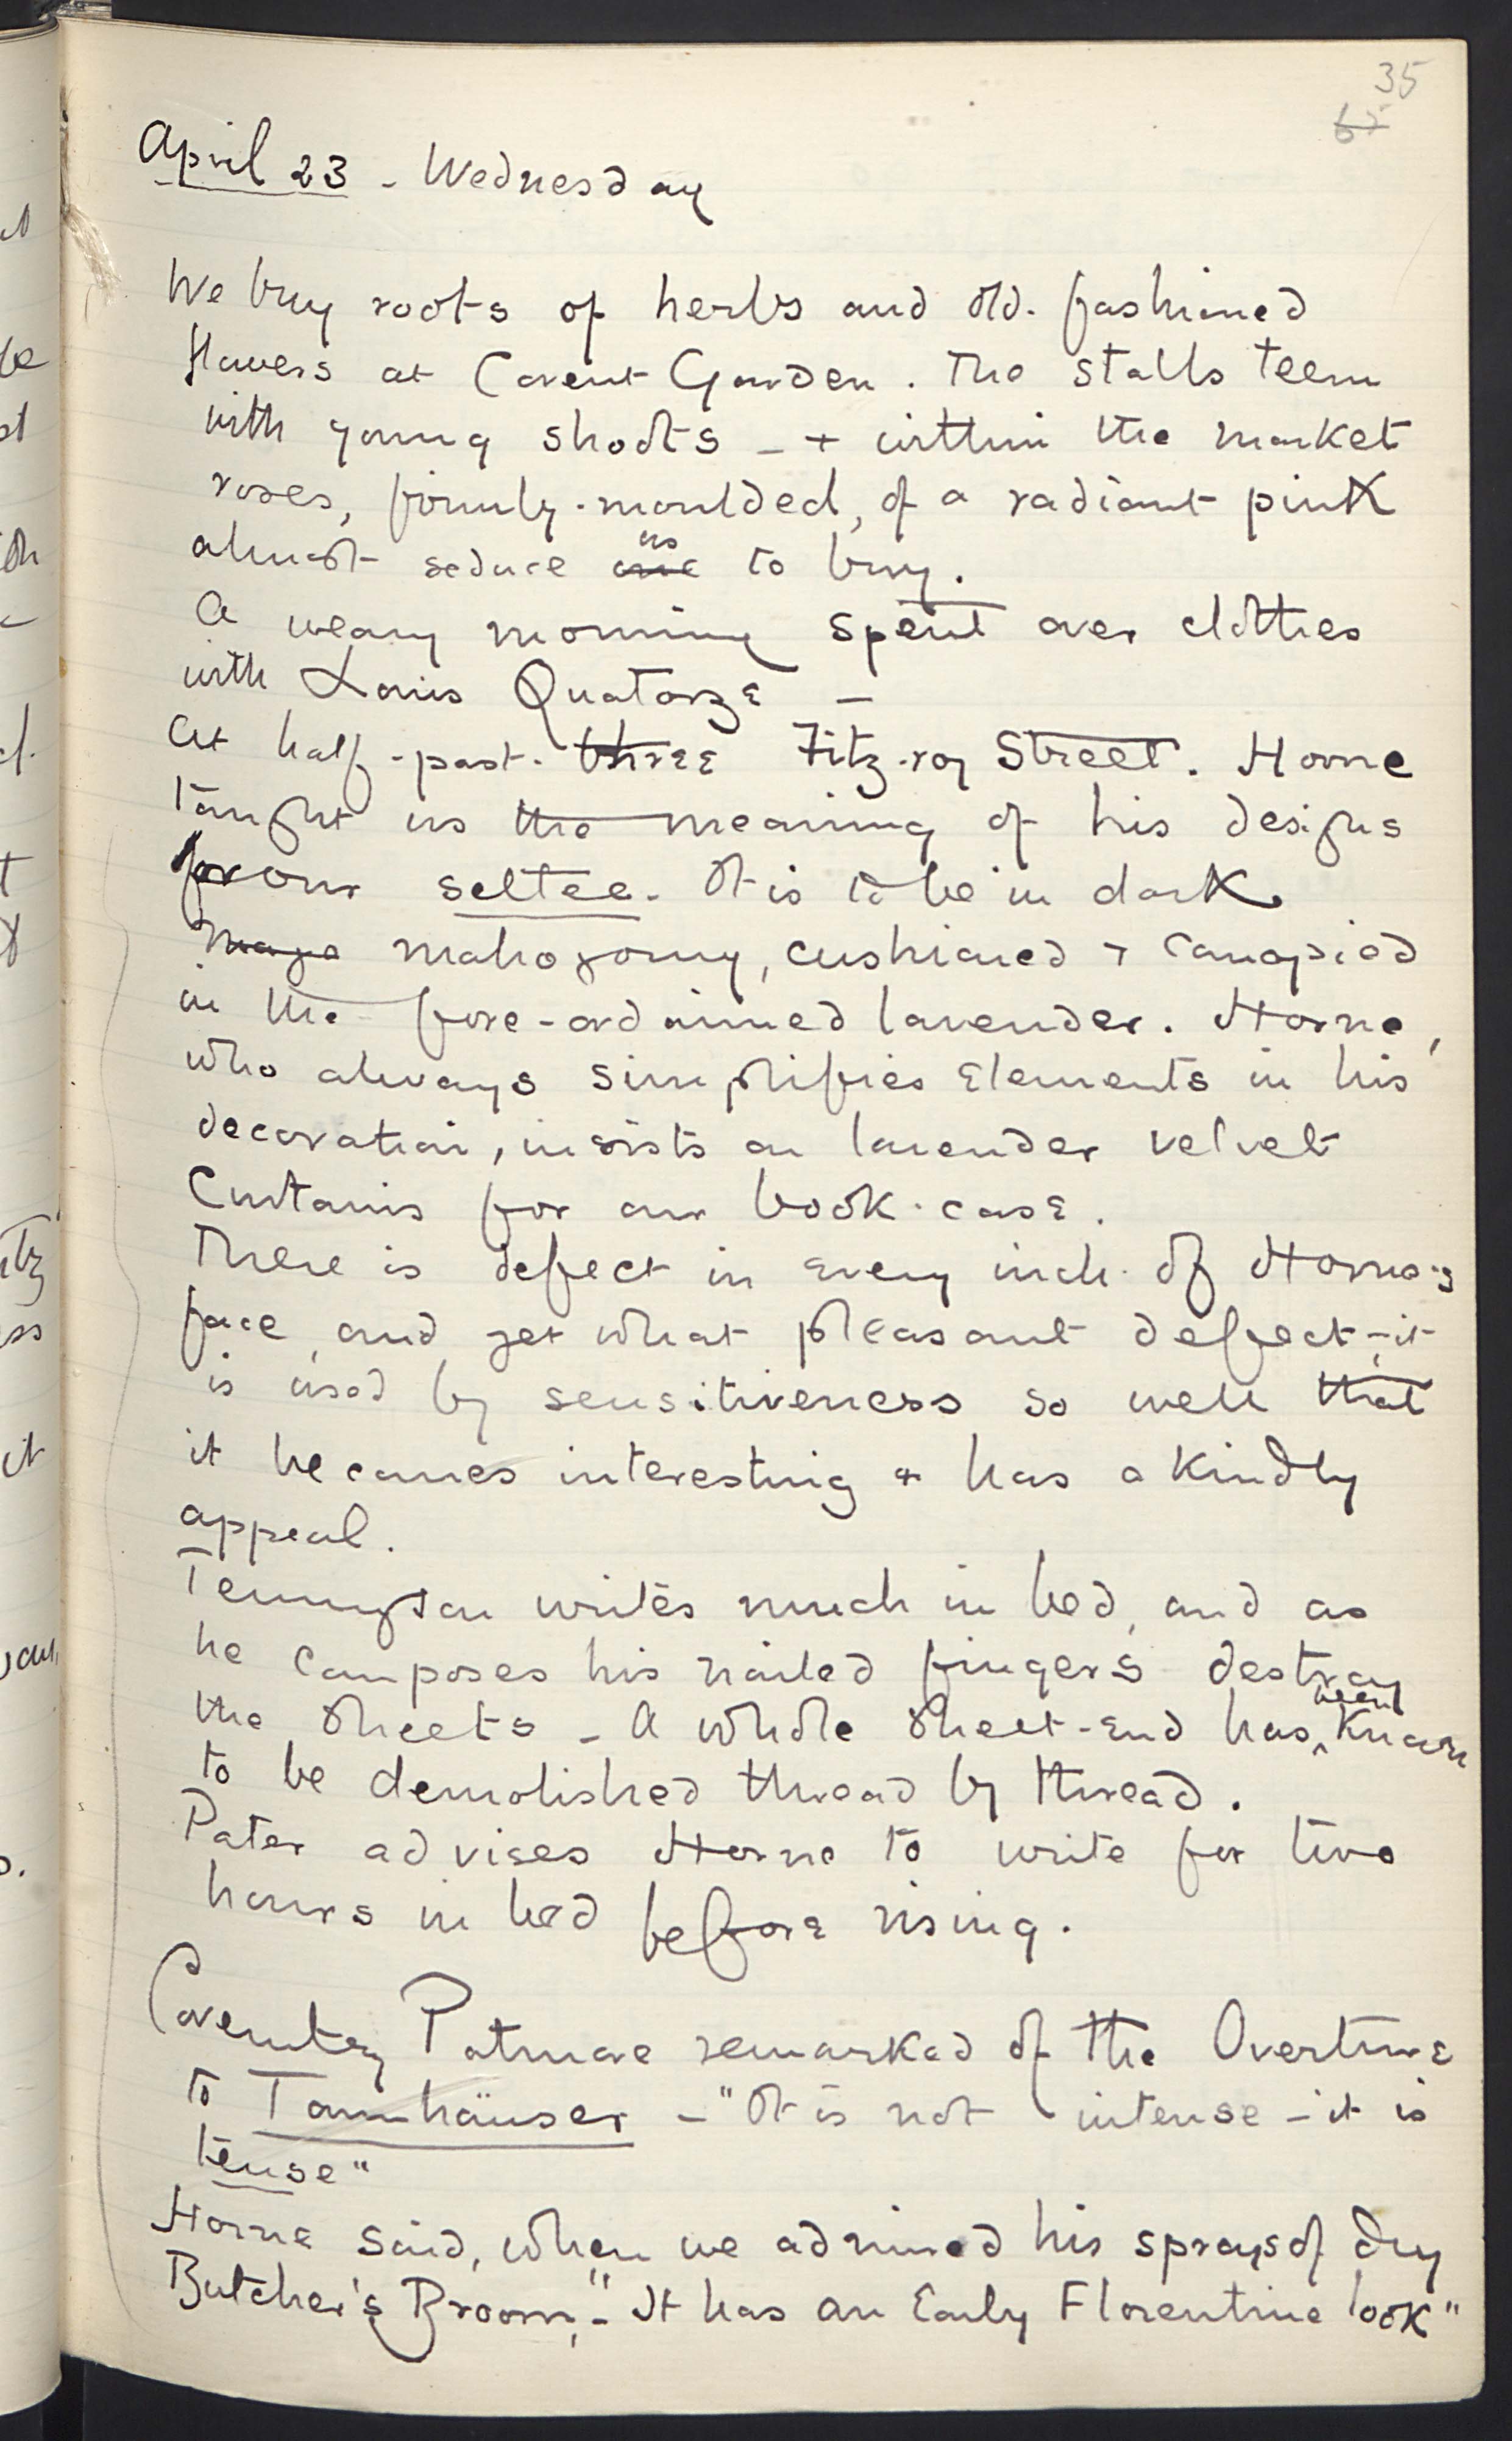 35
65
April 23 - Wednesday
We buy roots of herbs and old-fashioned
flowers at Covent Garden. The stalls teem
with young shoots - + within the market
roses, firmly-moulded, of a radiant pink
almost seduce one us to buy.
A weary morning spent over clothes
with Louis Quatorze -
At half-past-three Fitz-roy Street. Horne
taught us the meaning of his designs
for our settee. It is to be in dark
maga mahogony, cushioned + canopied
in the fore-ordained lavender. Horne,
who always simplifies elements in his
decoration, insists on lavender velvet
Curtains for our book-case.
There is defect in every inch of Horne's
face, and yet what pleasant defect - it
is used by sensitiveness so well that
it becomes interesting & has a kindly
appeal.
Tennyson writes much in bed, and as
he composes his nailed fingers destroy
the sheets - A whole sheet-end has been known
to be demolished thread by thread.
Pater advises Horne to write for two
hours in bed before rising.
Coventry Patmore remarked of the Overture
to Tannhäuser - "It is not intense - it is
tense"
Horne said, when we admired his sprays of dry
Butcher's Broom, - "It has an Early Florentine look"